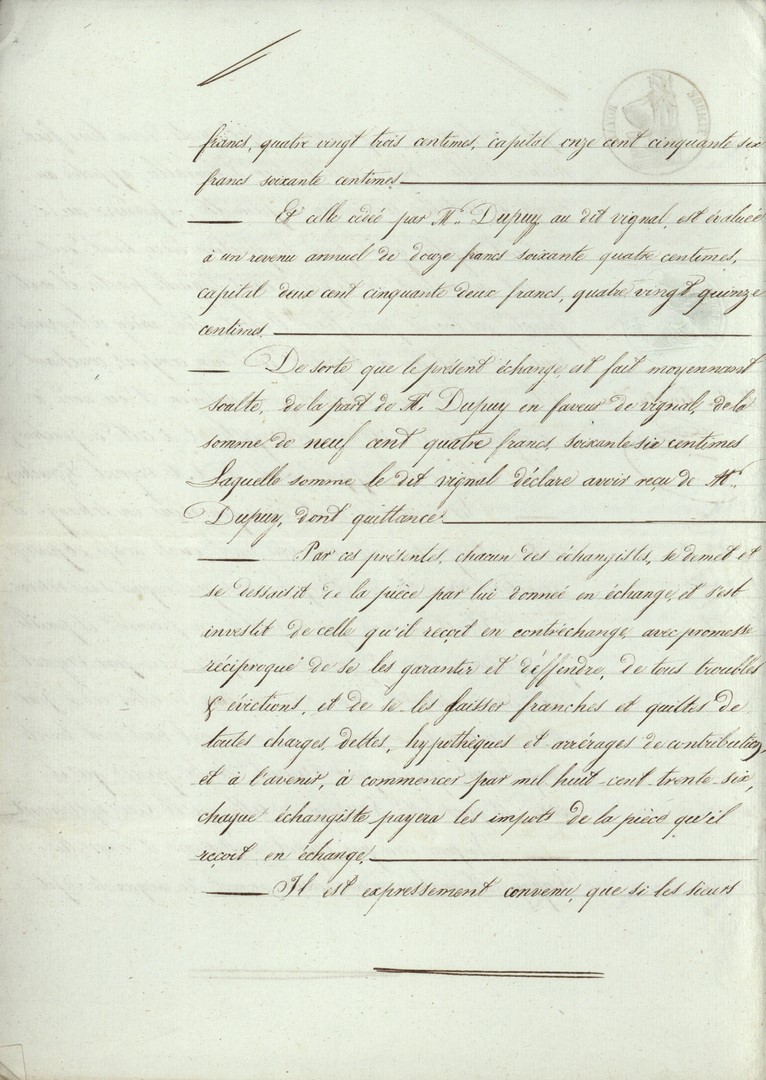 francs, quatre vingt trois centimes, capital onze cent cinquante six
francs soixante centimes
Et celle cédée par Mr. Dupuy au dit vignal, est évaluée
à un revenu annuel de douze francs soixante quatre centimes,
capital deux cent cinquante deux francs, quatre vingt quinze
centimes.
De sorte que le présent échange, est fait moyennant
soulte, de la part de Mr. Dupuy en faveur de vignal, de la
somme de neuf cent quatre francs, soixante six centimes
Laquelle somme le dit vignal déclare avoir reçu de Mr.
Dupuy, dont quittance.
Par ces présentes, chacun des échangistes, se demet et
se dessaisit de la pièce par lui donnée en échange, et s'est
investit de celle qu'il reçoit en contréchange, avec promesse
réciproque de se les garantir et déffendre, de tous troubles
& évictions, et de se les laisser franches et quittes de
toutes charges, dettes, hypothèques et arrérages de contribution,
et à l'avenir, à commencer par mil huit cent trente six,
chaque échangiste payera les impots de la pièce qu'il
reçoit en échange.
Il est expressement convenu, que si les sieurs